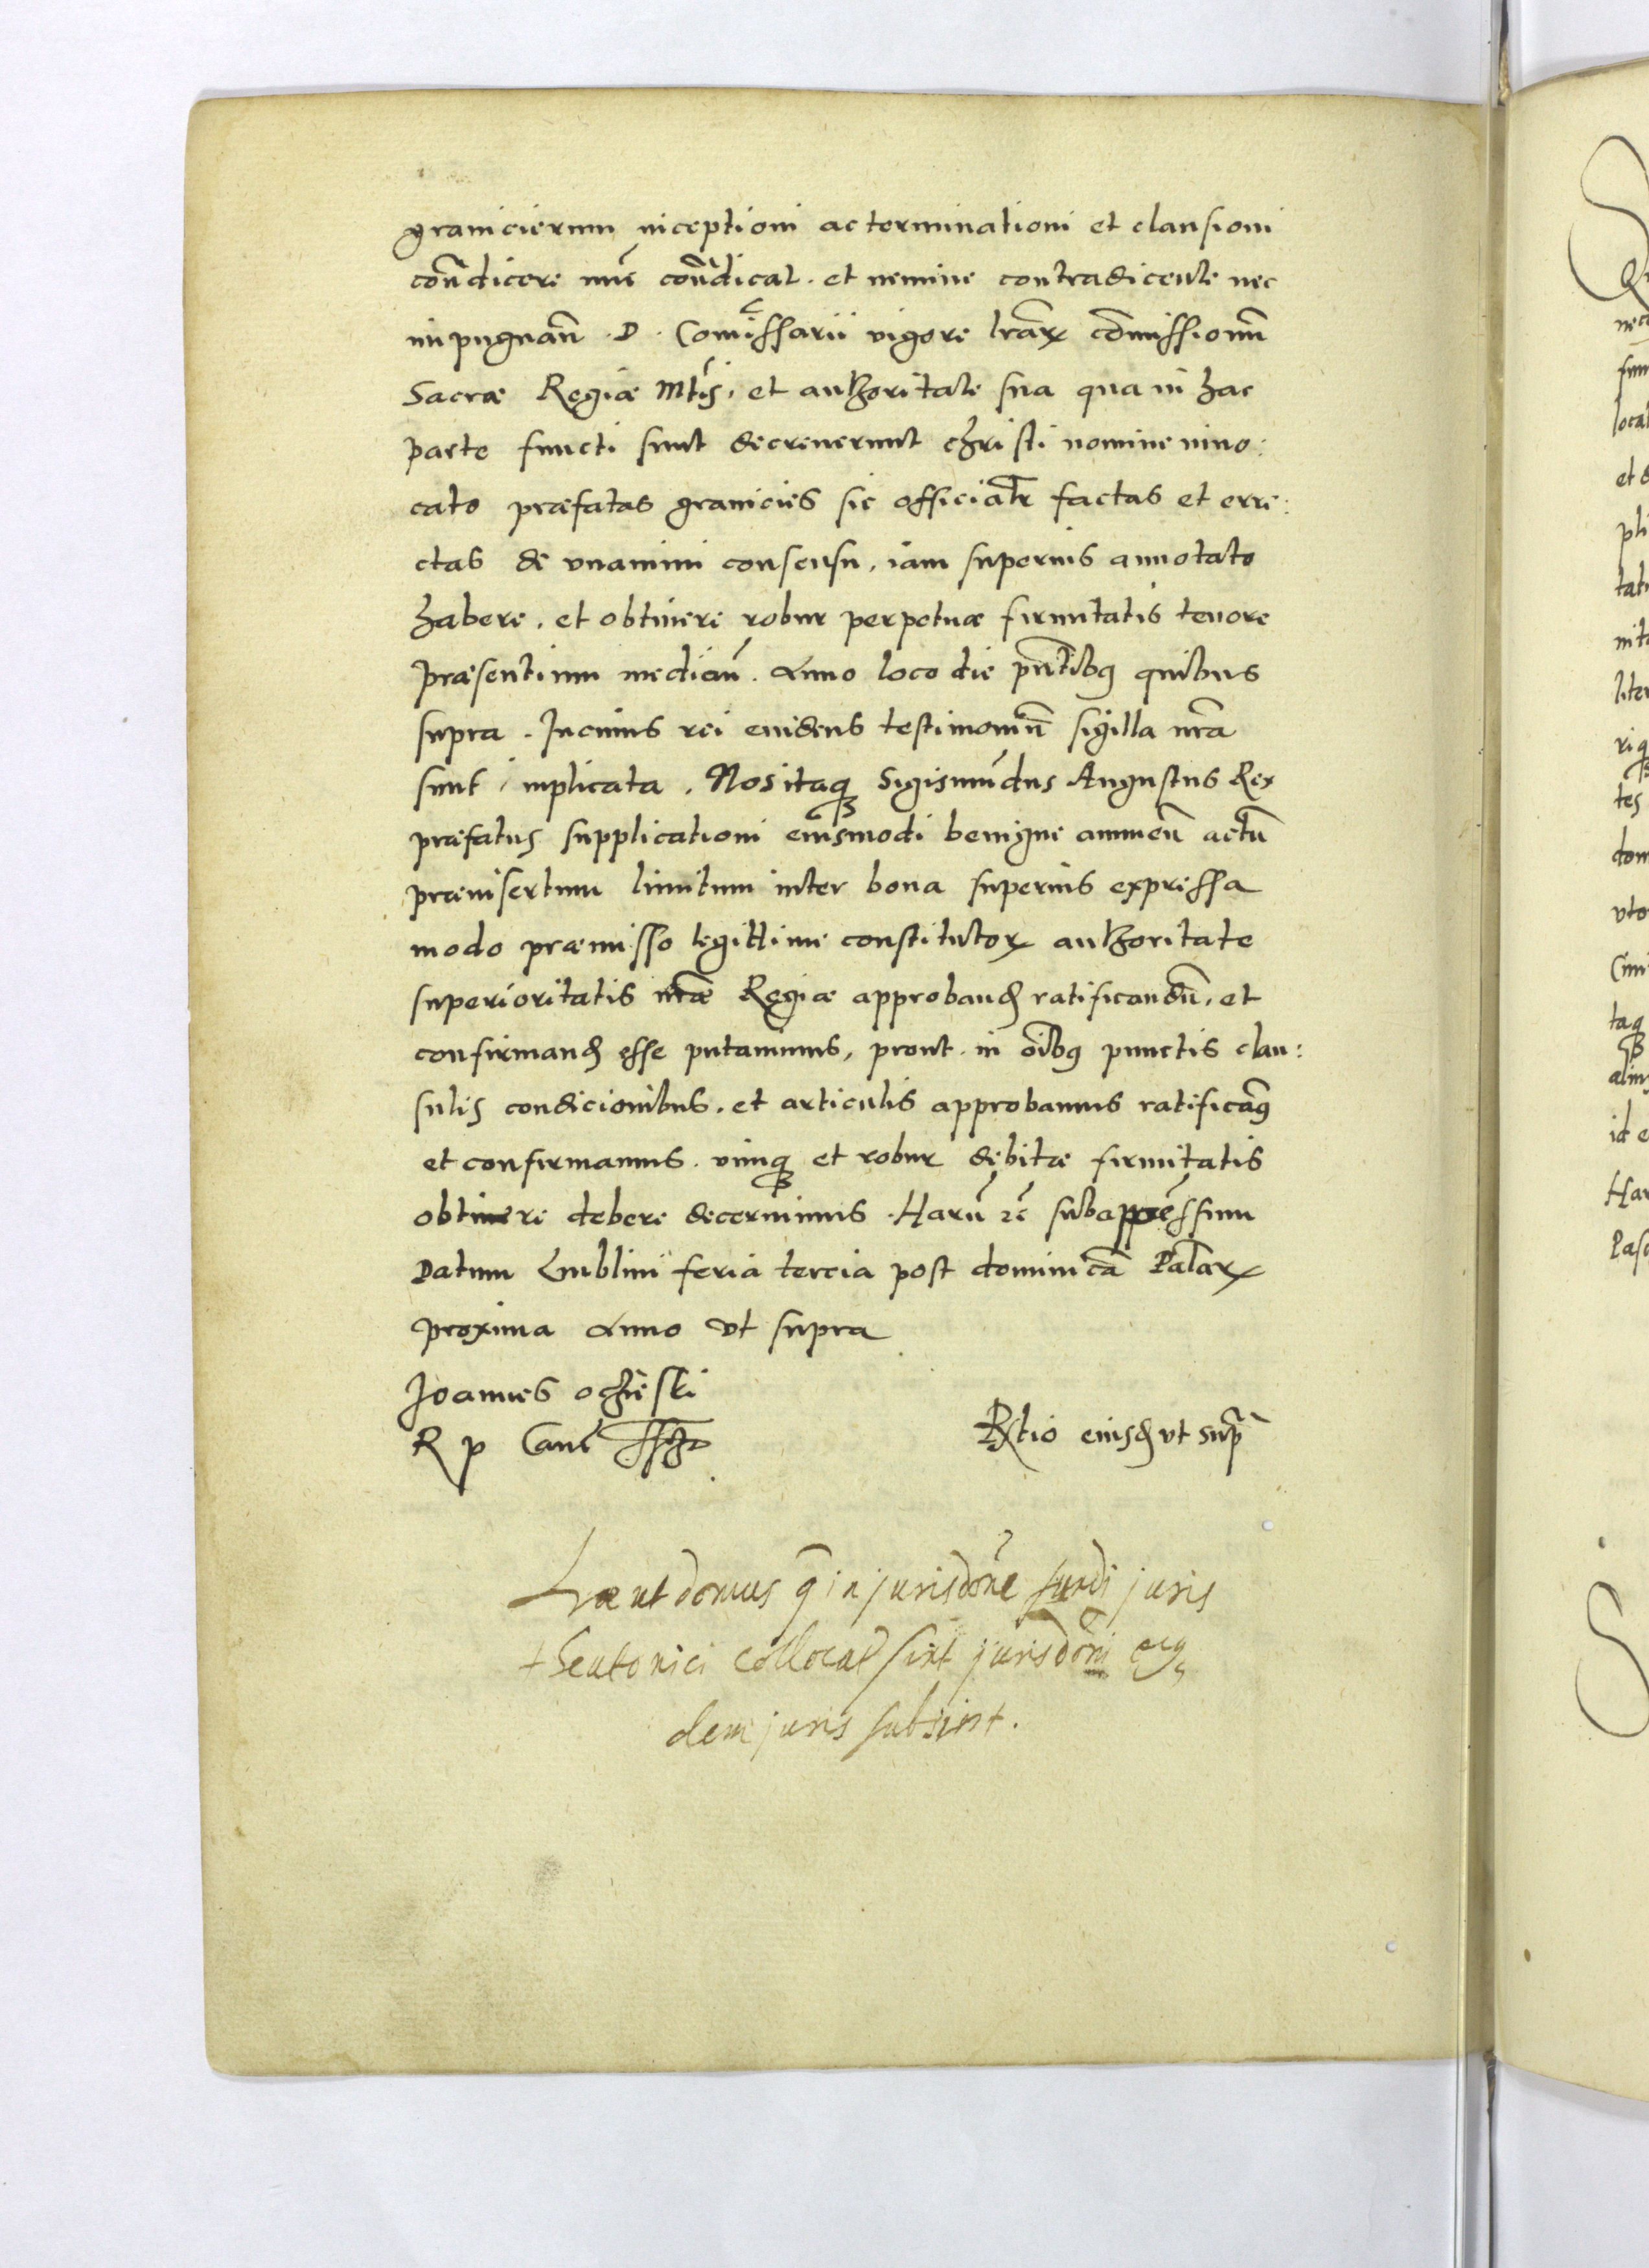 granicierum inceptioni ac terminationi et clausioni
con̄dicere nūc con̄dicat. et nemine contradicente nec
impugnan̄. D. Com̄issarii vigore lrārꝝ com̄issionū
Sacræ Regiæ Mt̄is, et authoritate sua qua in hac
parte functi sunt decreuerunt christi nomine inuo:
cato præfatas granicies sic officiatr̄ factas et erre:
ctas de vnanimi consensu, iam superius annotato
habere, et obtinere robur perpetuæ firmitatis tenore
præsentium median̄. Anno loco die pn̄tibꝰ quibus
supra. In cuius rei euidens testimoniū sigilla nr̄a
sunt implicata. Nos itaqꝫ Sigismūdus Augustus Rex
præfatus supplicationi eiusmodi benigne annuen̄ actū
præinsertum limitum inter bona superius expressa
modo præmisso legittime constitutorꝝ authoritate
superioritatis nr̄æ Regiæ approband ratificandū, et
confirmand esse putauimus, prout in oībꝰ punctis clau:
sulis condicionibus, et articulis approbamus ratificamꝰ
et confirmamus. vimqꝫ et robur debitæ firmitatis
obtinere debere decernimus. Harū ꝛc̄ subappressum
Datum Lublini feria tercia post dominicā Palmarꝝ
proxima Anno vt supra
Joannes ochieski
R p Canc̄
Rītio eiusd vt supr̄
Lræ ut domus q̄ in jurisdōne fundi juris
theutonici collocat sint jurisdōni eiꝰ
dem juris subsint.